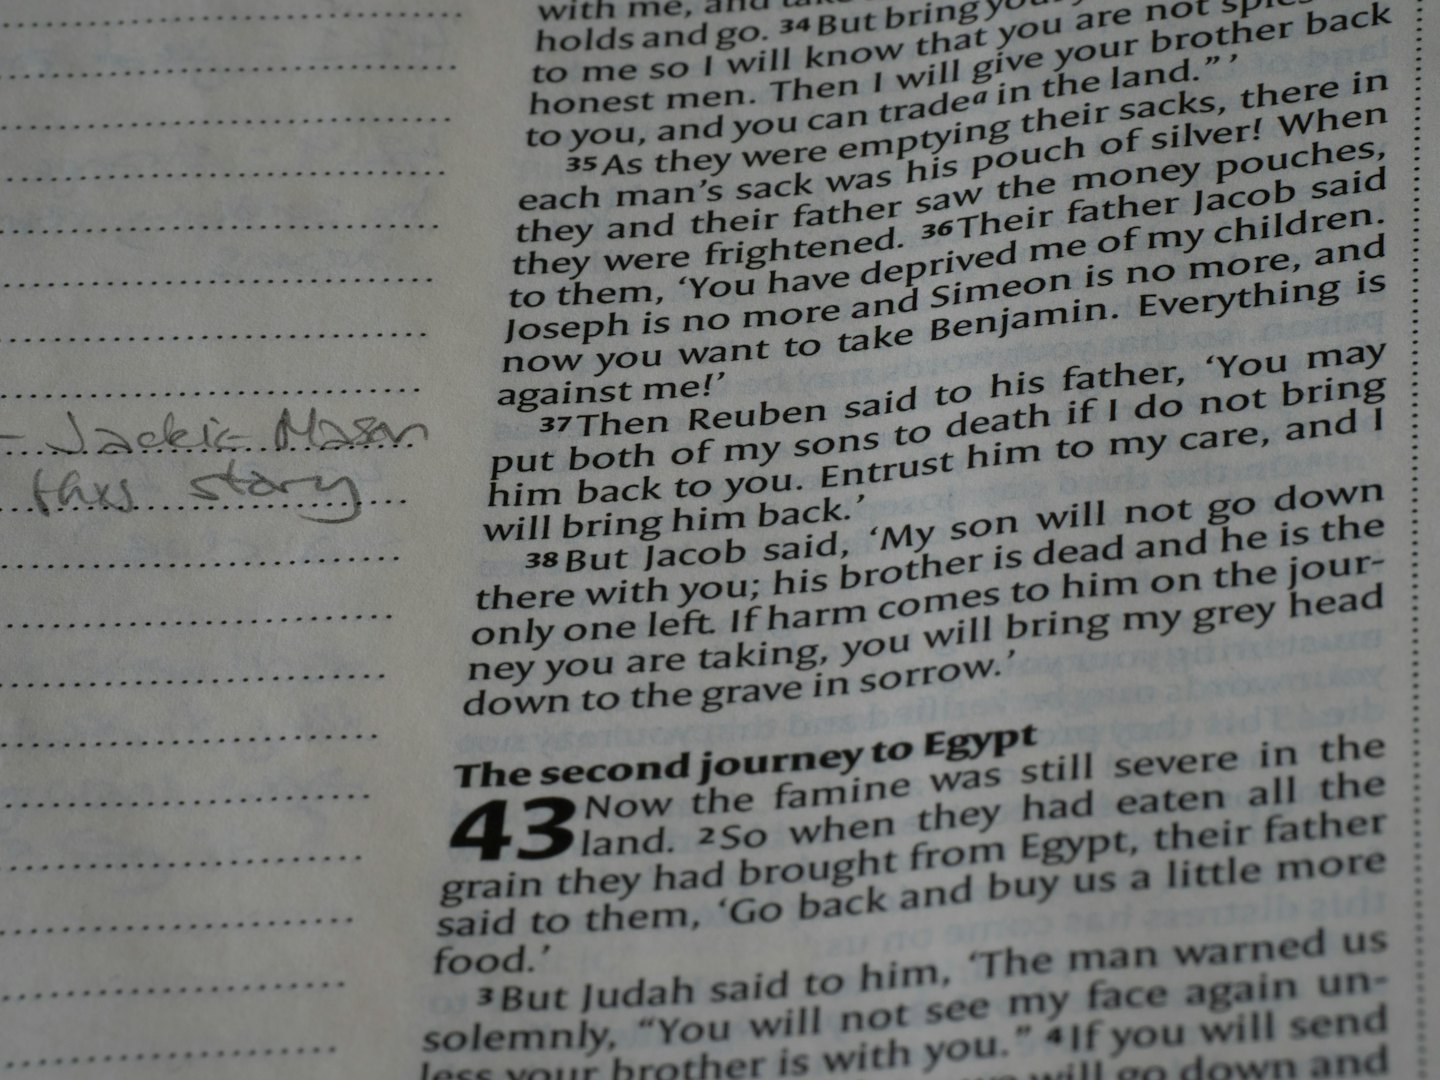 with me, and take
holds and go. 34 But bring your
to me so I will know that you are not spies
honest men. Then I will give your brother back
to you, and you can trade a in the land." '
35 As they were emptying their sacks, there in
each man's sack was his pouch of silver! When
they and their father saw the money pouches,
they were frightened. 36 Their father Jacob said
to them, 'You have deprived me of my children.
Joseph is no more and Simeon is no more, and
now you want to take Benjamin. Everything is
against me!'
37 Then Reuben said to his father, 'You may
put both of my sons to death if I do not bring
him back to you. Entrust him to my care, and I
will bring him back.'
38 But Jacob said, 'My son will not go down
there with you; his brother is dead and he is the
only one left. If harm comes to him on the jour-
ney you are taking, you will bring my grey head
down to the grave in sorrow.'
The second journey to Egypt
43 Now the famine was still severe in the
land. 2 So when they had eaten all the
grain they had brought from Egypt, their father
said to them, 'Go back and buy us a little more
food.'
3 But Judah said to him, 'The man warned us
solemnly, "You will not see my face again un-
less your brother is with you." 4 If you will send
will go down and
- Jackie Mason
this story